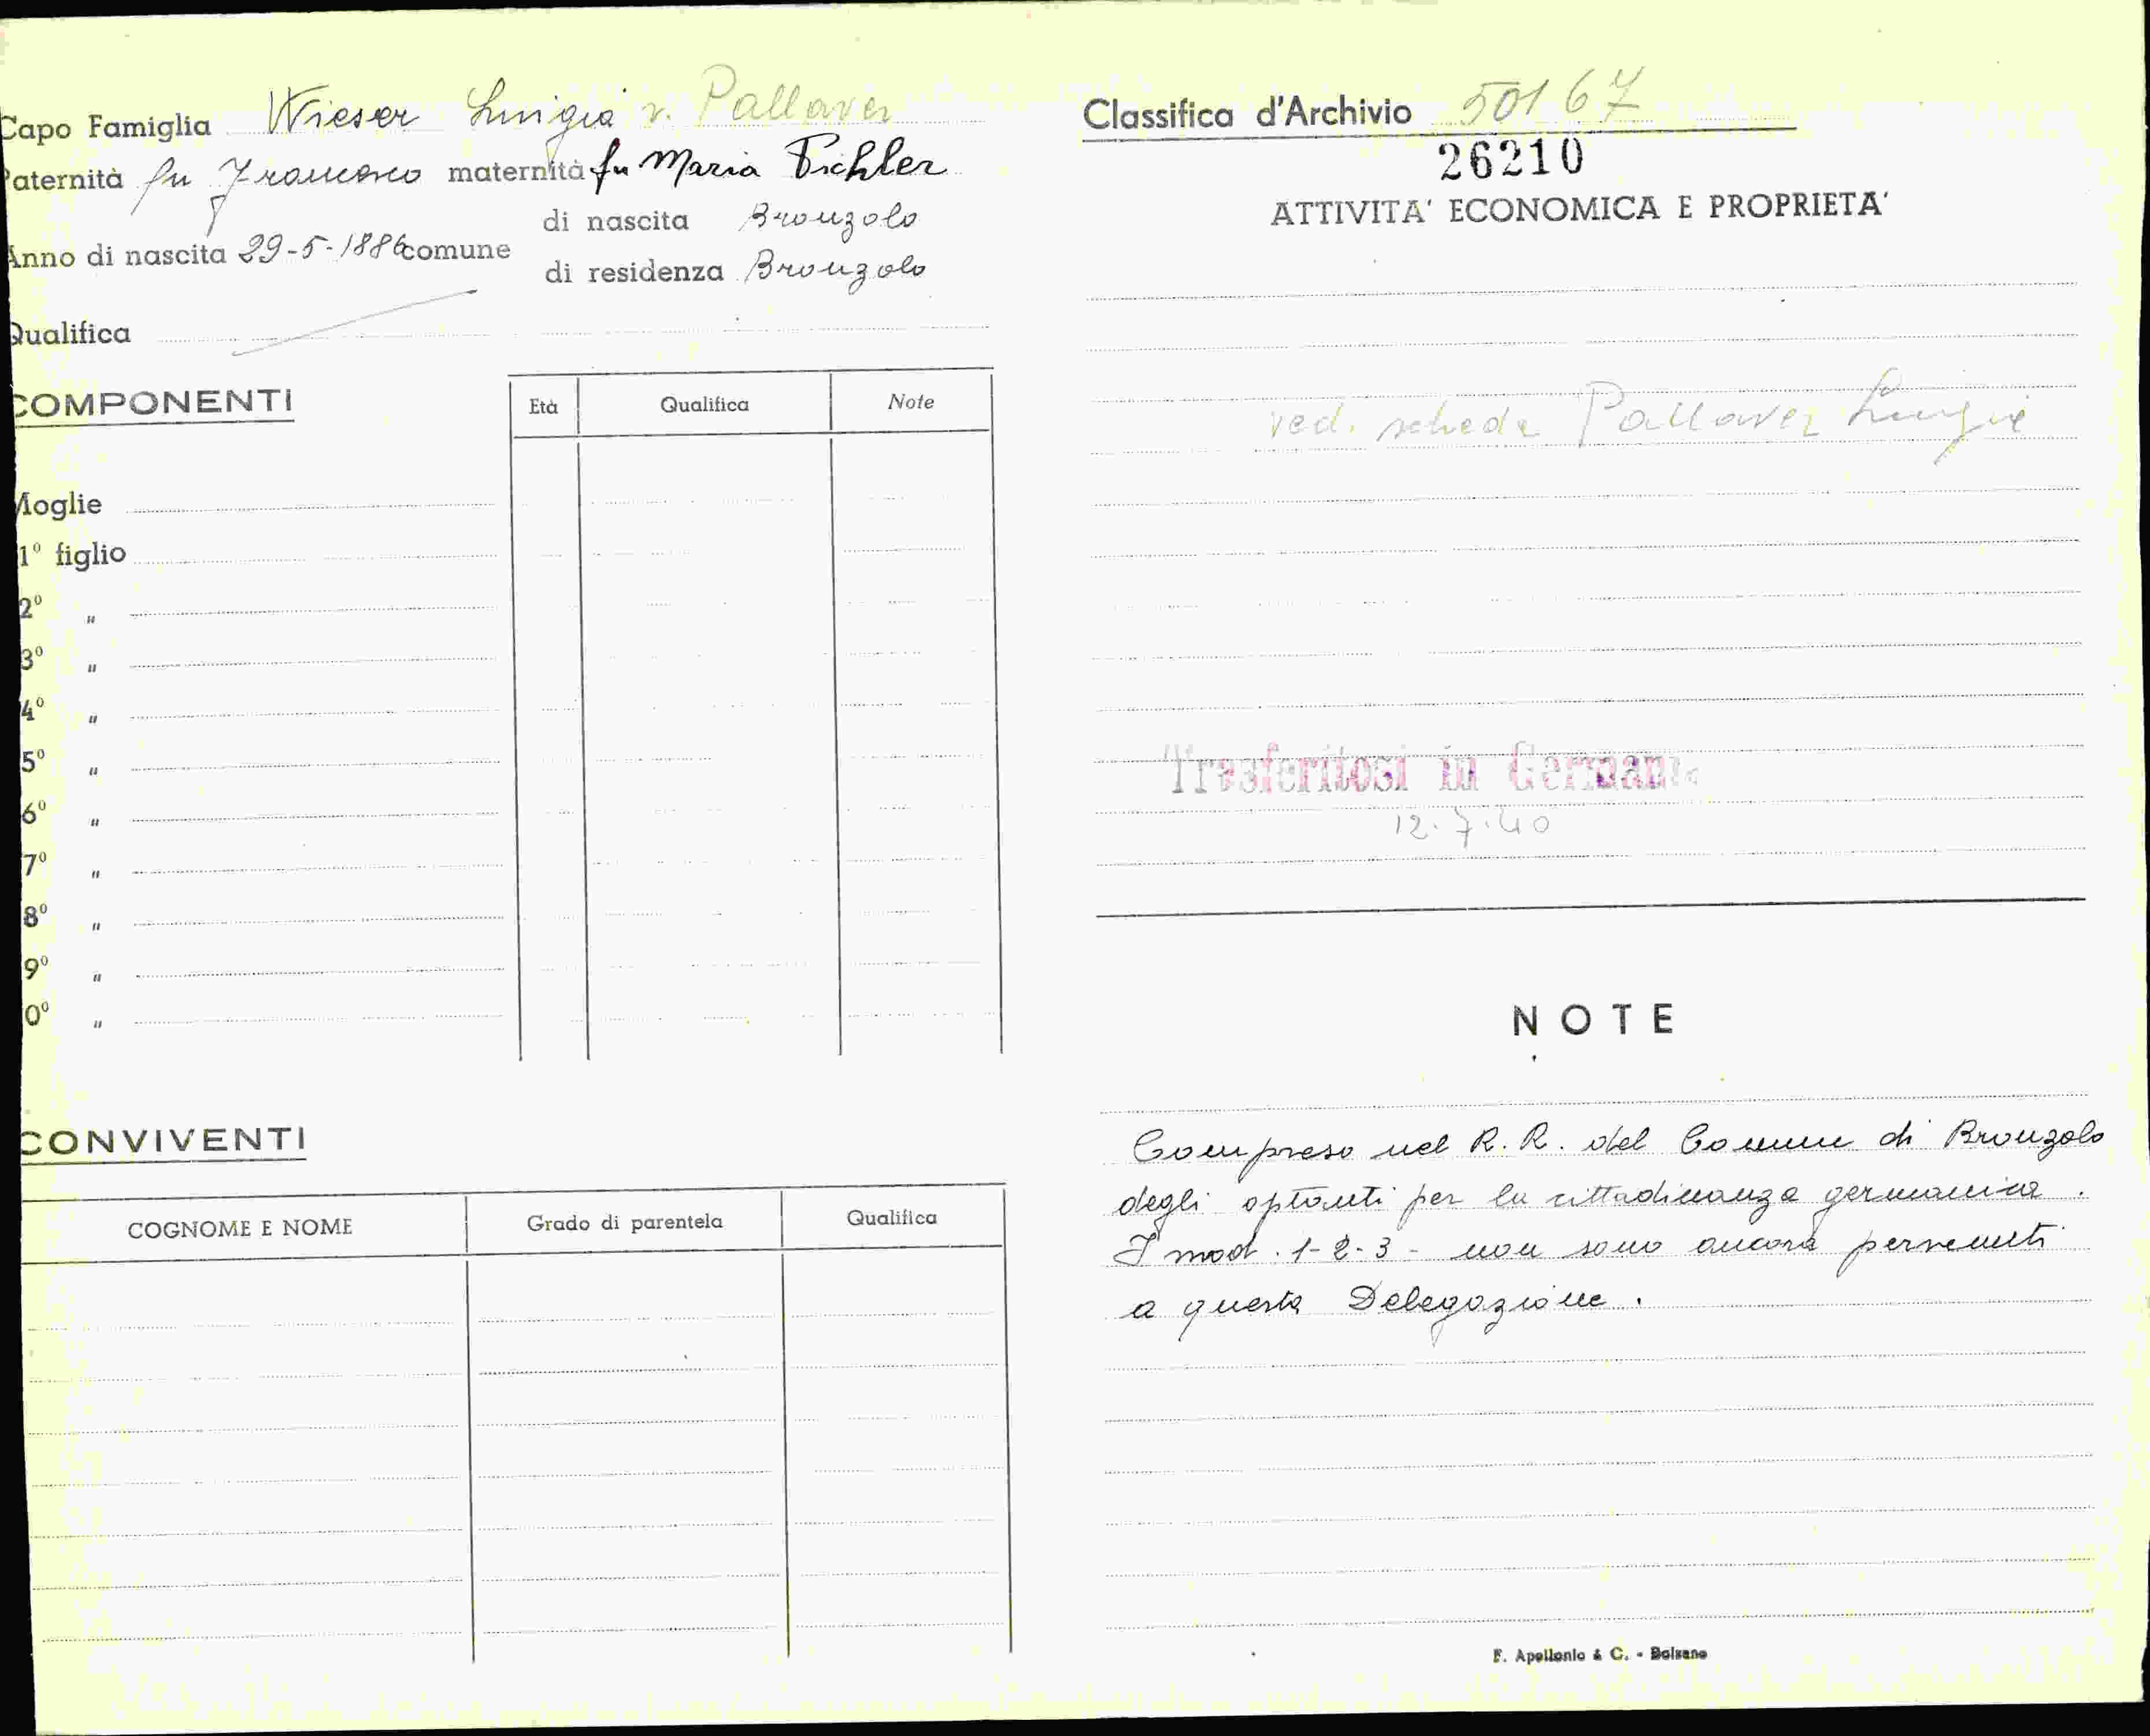 Capo Famiglia Wieser Luigia v. Pallaver
Paternità fu Francesco maternità fu Maria Pichler
Anno di nascita 29-5-1886 comune
di nascita Bronzolo
di residenza Bronzolo
Qualifica
COMPONENTI
Età Qualifica Note
Moglie
1º figlio
2º "
3º "
4º "
5º "
6º "
7º "
8º "
9º "
0º "
CONVIVENTI
COGNOME E NOME Grado di parentela Qualifica
Classifica d'Archivio 50167
26210
ATTIVITA' ECONOMICA E PROPRIETA'
ved. scheda Pallaver Luigia
Trasferitosi in Germania
12.7.40
NOTE
Compreso nel R. R. del Comune di Bronzolo
degli optanti per la cittadinanza germanica.
I mod. 1-2-3- non sono ancora pervenuti
a questa Delegazione.
F. Apollonio & C. - Bolzano